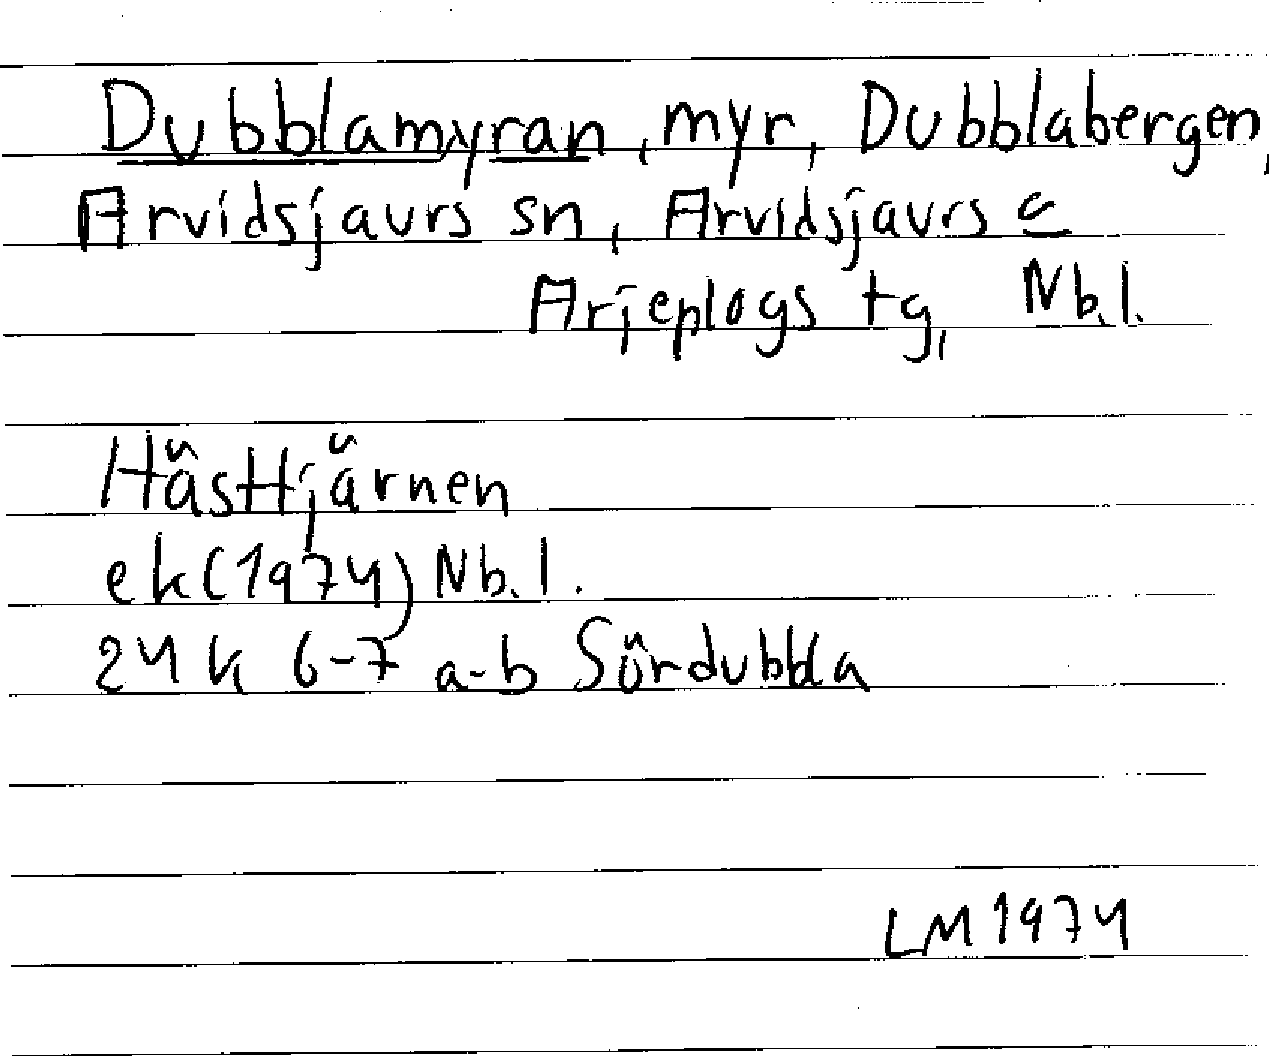 Dubblamyran, myr, Dubblabergen,
Arvidsjaurs sn, Arvidsjaurs o
Arjeplogs tg, Nb.l.
Hästtjärnen
ek (1974) Nb.l.
24k 6-7 a-b Sördubbla
LM 1974